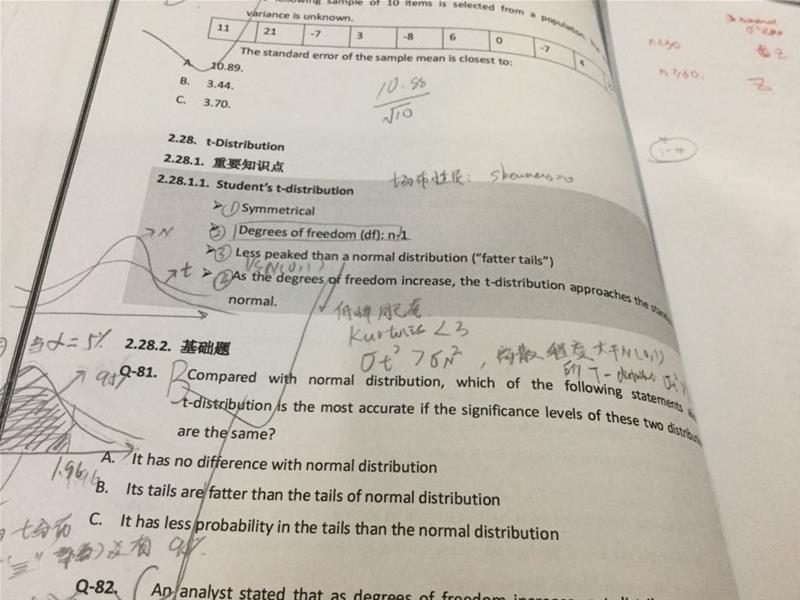 following sample of 10 items is selected from a population. The
variance is unknown.
11 21 -7 3 -8 6 0 -7 4
The standard error of the sample mean is closest to:
A. 10.89.
B. 3.44.
C. 3.70.
10.88
√10
n<30
n≥30. Z
Z
2.28. t-Distribution
2.28.1. 重要知识点
t分布性质: skewness=0
2.28.1.1. Student's t-distribution
① Symmetrical
② Degrees of freedom (df): n-1
③ Less peaked than a normal distribution ("fatter tails")
VS N(0,1)
④ As the degrees of freedom increase, the t-distribution approaches the
normal.
N
t
低峰肥尾
Kurtosis <3
σt² > σN², 离散程度大于N(0,1)
当α=5%
2.28.2. 基础题
Q-81. Compared with normal distribution, which of the following statements
t-distribution is the most accurate if the significance levels of these two
are the same?
95%
1.96
A. It has no difference with normal distribution
B. Its tails are fatter than the tails of normal distribution
C. It has less probability in the tails than the normal distribution
t分布
没有
Q-82. An analyst stated that as degrees of freedom